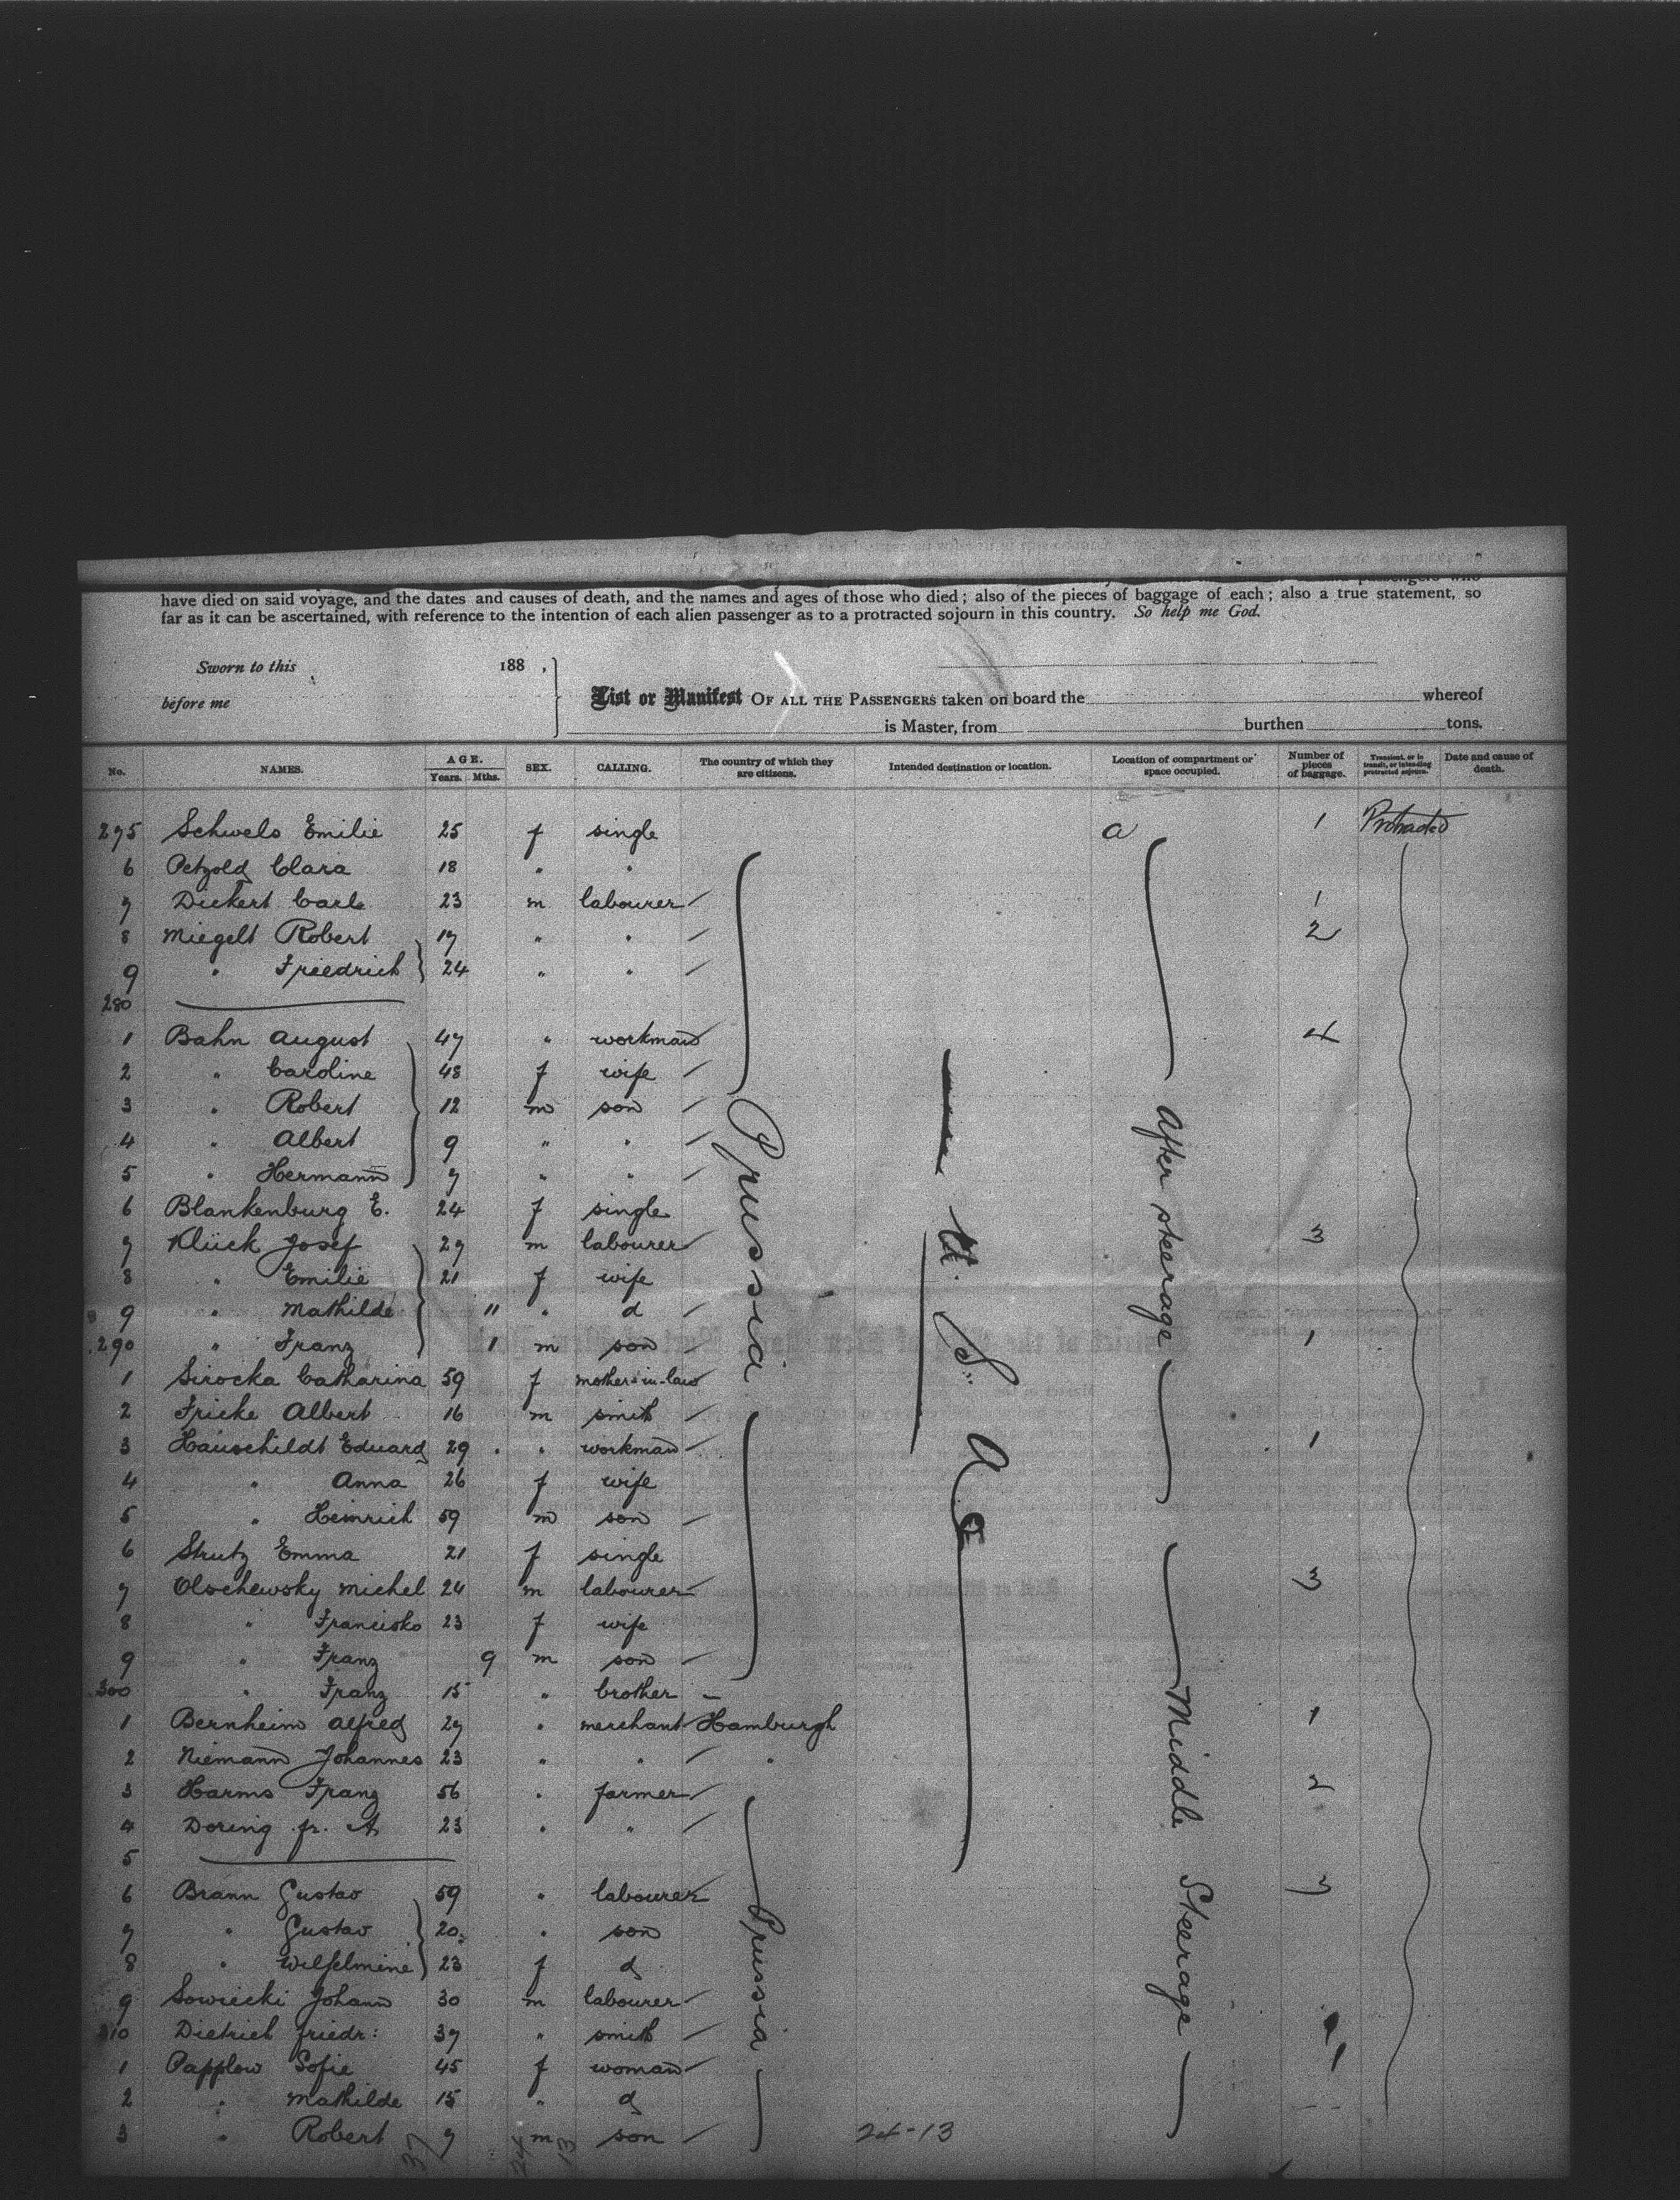 have died on said voyage, and the dates and causes of death, and the names and ages of those who died; also of the pieces of baggage of each; also a true statement, so
far as it can be ascertained, with reference to the intention of each alien passenger as to a protracted sojourn in this country. So help me God.
Sworn to this 188 ,
before me
List or Manifest OF ALL THE PASSENGERS taken on board the whereof
is Master, from burthen tons.
No. NAMES. AGE. Years. Mths. SEX. CALLING. The country of which they are citizens. Intended destination or location. Location of compartment or space occupied. Number of pieces of baggage. Transient, or in transit, or intending protracted sojourn. Date and cause of death.
275 Schwels Emilie 25 f single a 1 Protracted
6 Petzold Clara 18 " "
7 Dickert Carl 23 m labourer 1
8 Miegelt Robert 17 " " 2
9 " Friedrich 24 " "
280
1 Bahn August 47 " workman 4
2 " Caroline 48 f wife
3 " Robert 12 m son
4 " Albert 9 " "
5 " Hermann 7 " "
6 Blankenburg E. 24 f single
7 Klück Josef 27 m labourer 3
8 " Emilie 21 f wife
9 " Mathilde 11 " d
290 " Franz 1 m son 1
1 Sirocka Catharina 59 f mother-in-law
2 Fricke Albert 16 m smith
3 Hauschildt Eduard 29 " workman 1
4 " Anna 26 f wife
5 " Heinrich 59 m son
6 Strutz Emma 21 f single
7 Olschewsky Michel 24 m labourer 3
8 " Francisko 23 f wife
9 " Franz 9 m son
300 " Franz 15 " brother
1 Bernheim Alfred 27 " merchant Hamburgh 1
2 Niemann Johannes 23 " " "
3 Harms Franz 56 " farmer 2
4 Doring fr. A 23 " "
5
6 Brann Gustav 59 " labourer 3
7 " Gustav 20 " son
8 " Wilhelmine 23 f d
9 Sowiecki Johann 30 m labourer
310 Dietrich friedr: 37 " smith
1 Papplow Sofie 45 f woman 1
2 " Mathilde 15 " d
3 " Robert 7 m son 24-13
Prussia
Prussia
U. S. A.
After steerage
Middle Steerage
37 24 13